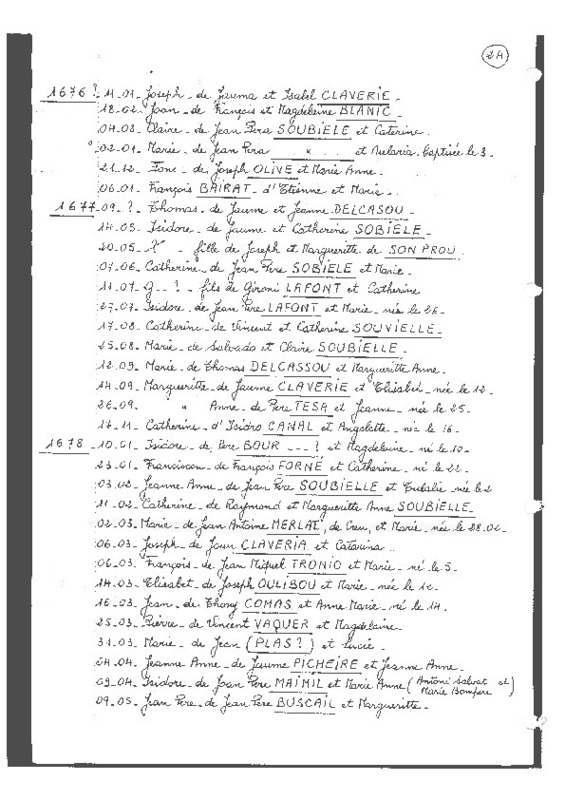 24
1676? 11.01. Joseph - de Jauma et Isabel CLAVERIE -
18.02. Joan - de François et Magdeleine BLANIC -
04.08. Claire - de Jean Pera SOUBIELE et Caterine -
02.01. Marie - de Jean Pera ... x ... et Eularia. baptisée le 3 -
21.12. Fonc - de Joseph OLIVE et Marie Anne -
06.01. François BAIRAT - d'Etienne et Marie -
1677 - 09. ? - Thomas - de Jaume et Jeanne DELCASOU -
14.05. Isidore - de Jaume et Catherine SOBIELE -
20.05 - ? - fille de Joseph et Margueritte de SON PROU -
07.06. Catherine - de Jean Pere SOBIELE et Marie -
11.07. G - - ? - fils de Gironi LAFONT et Catherine
27.07. Isidore - de Jean Pere LAFONT et Marie - née le 26 -
17.08 - Catherine - de Vincent et Catherine SOUVIELLE -
25.08 - Marie - de Salvado et Claire SOUBIELLE -
12.09 - Marie - de Thomas DELCASSOU et Margueritte Anne -
14.09. Margueritte - de Jaume CLAVERIE et Elisabet - née le 12 -
26.09. " Anne - de Pere TESA et Jeanne - née le 25 -
17.11 - Catherine - d'Isidro CANAL et Angelette - née le 16 -
1678 - 10.01 - Isidore - de Pere BOUR - - - ? et Magdeleine - né le 10 -
23.01. Franciscou - de François FORNE et Catherine - né le 22 -
03.02 - Jeanne Anne - de Jean Pera SOUBIELLE et Eulalie - née le 2
11.02 - Catherine - de Raymond et Margueritte Anne SOUBIELLE -
02.03 - Marie - de Jean Antoine MERLAT, de Creu, et Marie - née le 28.02 -
06.03 - Joseph - de Joan CLAVERIA et Catarina -
06.03 - François - de Jean Miquel TRONIO et Marie - né le 5 -
14.03 - Elisabet - de Joseph OULIBOU et Marie - née le 12 -
16.03 - Jean - de COMAS et Anne Marie - né le 14 -
25.03 - Pierre - de Vincent VAQUER et Magdeleine
31.03 - Marie - de Jean (PLAS ?) et Lucie -
04.04 - Jeanne Anne - de Jaume PICHEIRE et Jeanne Anne -
09.04 - Isidore - de Joan Pere MAIMIL et Marie Anne (Antoni Salvat et Marie Bompere)
09.05 - Jean Pere - de Jean Pere BUSCAIL et Margueritte -